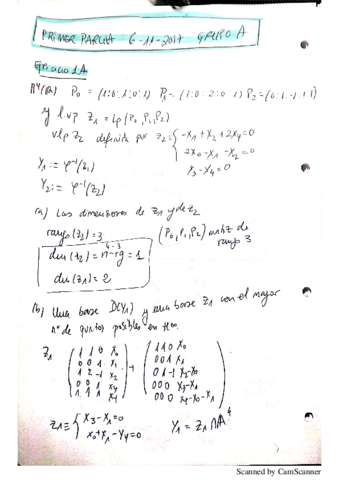 PRIMER PARCIAL 6-11-2017 GRUPO A
Ejercicio 1A
P0 = (1:0:1:0:1) P1 = (1:0:2:0:1) P2 =
y l.vp Z1 = Lp(P0,P1,P2)
vlp Z2 definida por Z2 ≡ { -X1+X2+2X4=0
2X0-X1-X2=0
X3-X4=0
Y1 := φ⁻¹(Z1)
Y2 := φ⁻¹(Z2)
(a) Las dimensiones de Z1 y de Z2
rango(Z2)=3
(P0,P1,P2) matriz de rango 3
dim(Z2)=n-rg=1
4-3
dim(Z1)=2
(b) Una base D(Y1) y una base Z1 con el mayor
nº de puntos posibles en
Z1
1 1 0 X0
0 0 1 X1
1 2 -1 X2
0 0 1 X3
1 1 1 X4
1 1 0 X0
0 0 1 X1
0 1 -1 X2-X0
0 0 0 X3-X1
0 0 0 X4-X0-X1
Z1 ≡ { X3-X1=0
X0+X1-X4=0
Y1 = Z1 ∩ A⁴
Scanned by CamScanner